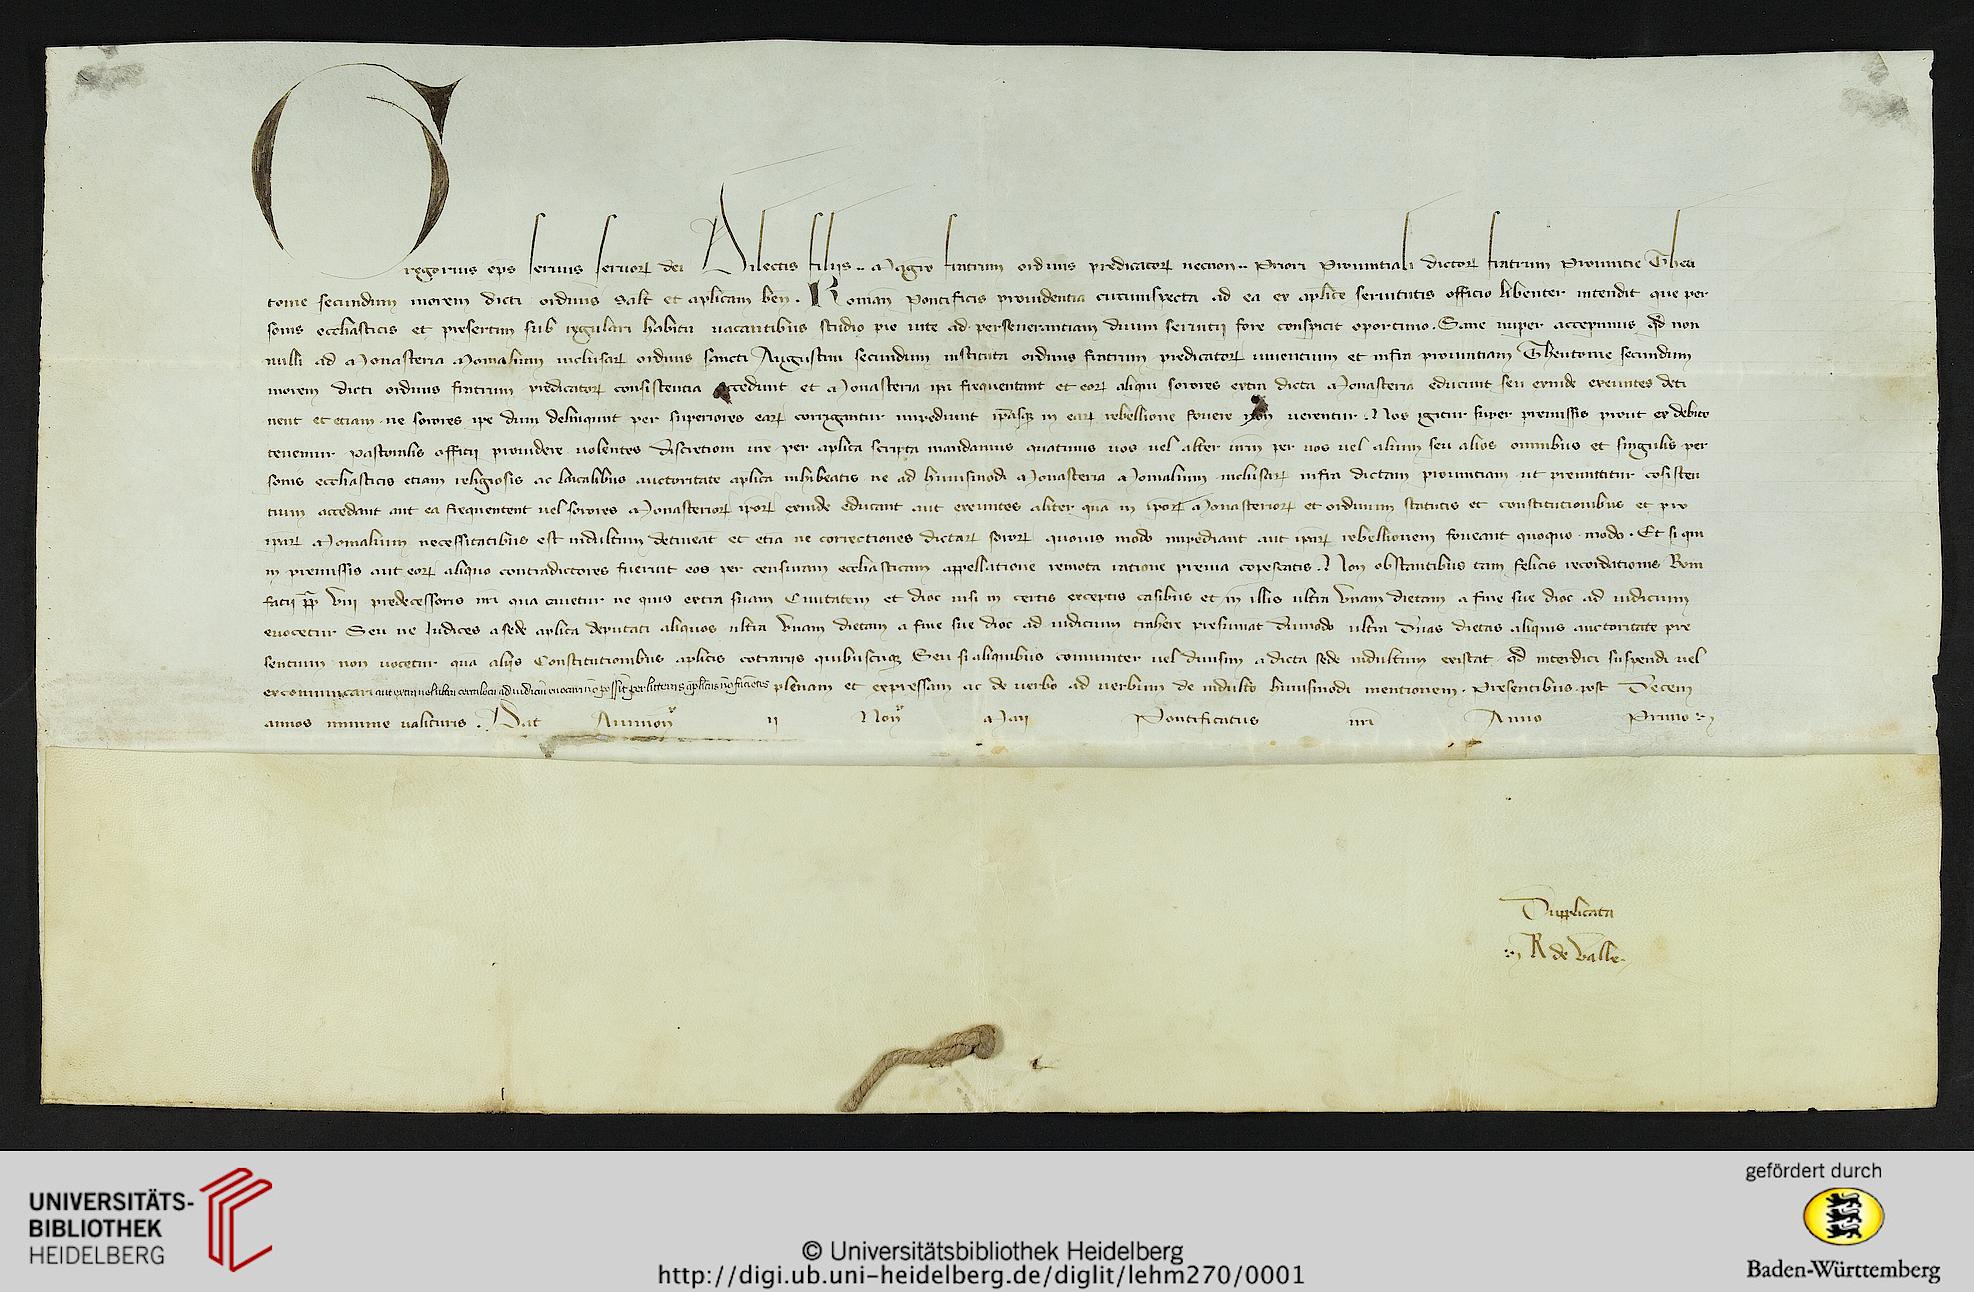 Gregorius eps servus servoꝝ dei Dilectis filiis .. Magr̄o fratrum ordinis predicatoꝝ necnon .. Priori Provintiali dictoꝝ fratrum Provintie Theu
tonie secundum morem dicti ordinis Salt et aplicam ben . Romani Pontificis providentia circumspecta ad ea ex aplice servitutis officio libenter intendit que per
sonis ecclesiasticis et presertim sub regulari habitu vacantibus studio pie vite ad perseverantiam divini servitii fore conspicit oportuno . Sane nuper accepimus qd non
nulli ad Monasteria Monialium inclusaꝝ ordinis sancti Augustini secundum instituta ordinis fratrum predicatoꝝ viventium et infra provintiam Theutonie secundum
morem dicti ordinis fratrum predicatoꝝ consistentia accedunt et Monasteria ipa frequentant et eoꝝ aliqui sorores extra dicta Monasteria educunt seu exinde exeuntes deti
nent et etiam ne sorores ipe dum delinquunt per superiores eaꝝ corrigantur impediunt ipasqꝫ in eaꝝ rebellione fovere non verentur . Nos igitur super premissis prout ex debito
tenemur pastoralis officii providere volentes discretioni vre per aplica scripta mandamus quatinus vos vel alter vrm per vos vel alium seu alios omnibus et singulis per
sonis ecclesiasticis etiam religiosis ac laicalibus auctoritate aplica inhibeatis ne ad huiusmodi Monasteria Monialium inclusaꝝ infra dictam provintiam ut premittitur cosisten
tium accedant aut ea frequentent vel sorores Monasterioꝝ ipoꝝ exinde educant aut exeuntes aliter qua in ipoꝝ Monasterioꝝ et ordinum statutis et constitutionibus et pro
ipaꝝ Monialium necessitatibus est indultum detineat et etia ne correctiones dictaꝝ soroꝝ quovis modo impediant aut ipaꝝ rebellionem foveant quoquo modo . Et si qui
in premissis aut eoꝝ aliquo contradictores fuerint eos per censuram ecclesiasticam appellatione remota ratione previa copescatis . Non obstantibus tam felicis recordationis Boni
facii pp VIII predecessoris nri qua cavetur ne quis extra suam Civitatem et dioc nisi in certis exceptis casibus et in illis ultra Unam dietam a fine sue dioc ad iudicium
evocetur Seu ne Iudices a sede aplica deputati aliquos ultra Unam dietam a fine sue dioc ad iudicium trahere presumat dumodo ultra Duas dietas aliquis auctoritate pre
sentium non vocetur qua aliis Constitutionibus aplicis cotrariis quibuscuqꝫ Seu si aliquibus comuniter vel divisim a dicta sede indultum existat qd interdici suspendi vel
excommunicari aut extra vel ultra certa loca ad iudiciu evocari no possit per litteras aplicas no facietes plenam et expressam ac de verbo ad verbum de indulto huiusmodi mentionem . Presentibus post Decem
annos minime valituris . Dat Avinion ii Non Maii Pontificatus nri Anno Primo
Dupplicata
R de Valle
UNIVERSITÄTS-
BIBLIOTHEK
HEIDELBERG
gefördert durch
Baden-Württemberg
© Universitätsbibliothek Heidelberg
http://digi.ub.uni-heidelberg.de/diglit/lehm270/0001